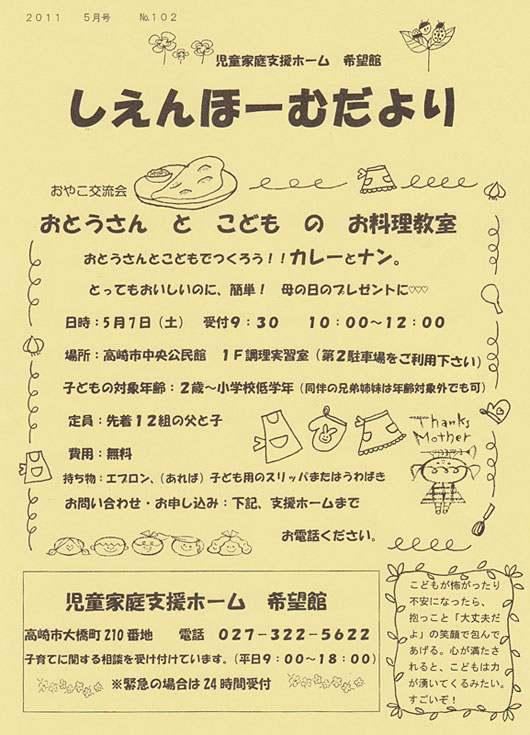 2011　5月号　No.102
児童家庭支援ホーム　希望館
しえんほーむだより
おやこ交流会
おとうさん　と　こども　の　お料理教室
おとうさんとこどもでつくろう！！カレーとナン。
とってもおいしいのに、簡単！　母の日のプレゼントに♡♡♡
日時：5月7日（土）　受付9：30　10：00～12：00
場所：高崎市中央公民館　1F調理実習室（第2駐車場をご利用下さい）
子どもの対象年齢：2歳～小学校低学年（同伴の兄弟姉妹は年齢対象外でも可）
定員：先着12組の父と子
費用：無料
持ち物：エプロン、（あれば）子ども用のスリッパまたはうわばき
お問い合わせ・お申し込み：下記、支援ホームまで
お電話ください。
Thanks
Mother
児童家庭支援ホーム　希望館
高崎市大橋町210番地　電話　027－322－5622
子育てに関する相談を受け付けています。（平日9：00～18：00）
※緊急の場合は24時間受付
こどもが怖がったり
不安になったら、
抱っこと「大丈夫だ
よ」の笑顔で包んで
あげる。心が満たさ
れると、こどもは力
が湧いてくるみたい。
すごいぞ！